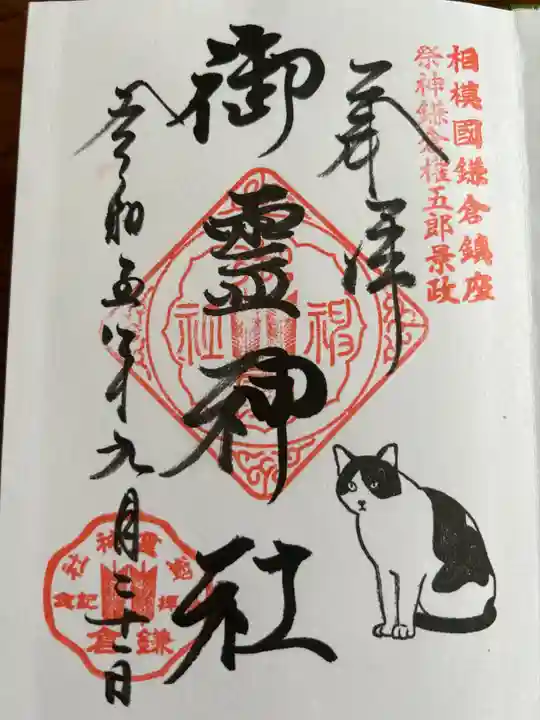 相模國鎌倉鎮座
祭神鎌倉権五郎景政
奉拝
御霊神社
令和五年九月三十日
神社
鎌倉